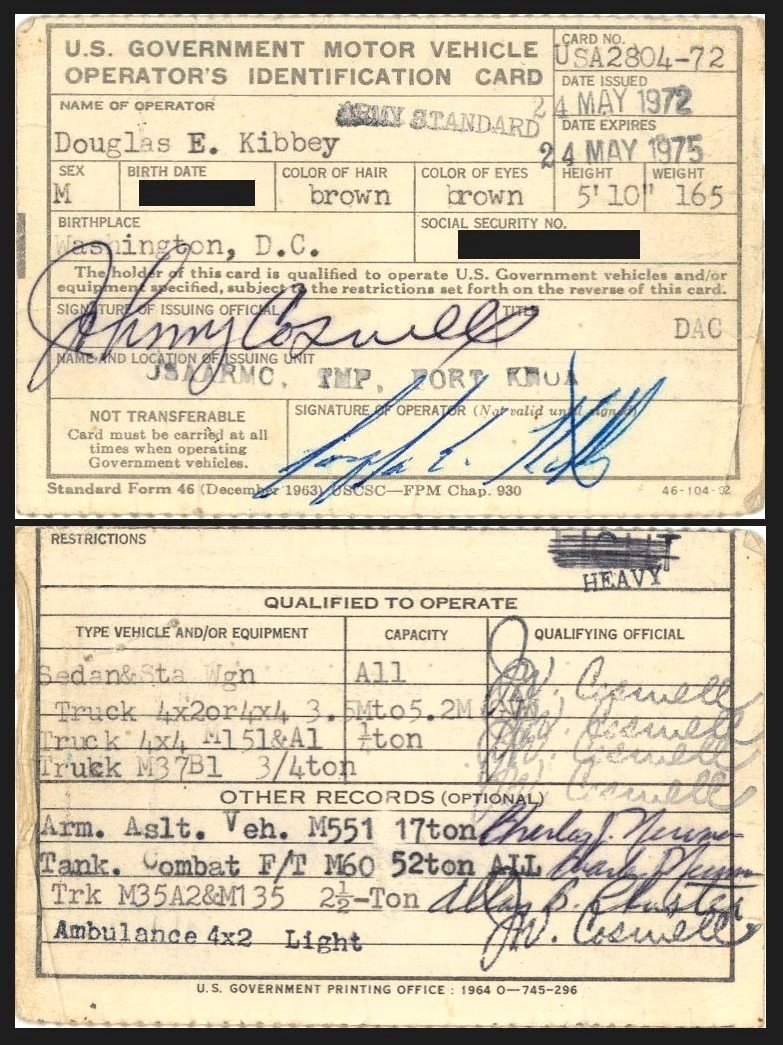 U.S. GOVERNMENT MOTOR VEHICLE
OPERATOR'S IDENTIFICATION CARD
CARD NO.
USA2804-72
DATE ISSUED
24 MAY 1972
DATE EXPIRES
24 MAY 1975
NAME OF OPERATOR
ARMY STANDARD
Douglas E. Kibbey
SEX
M
BIRTH DATE
COLOR OF HAIR
brown
COLOR OF EYES
brown
HEIGHT
5'10"
WEIGHT
165
BIRTHPLACE
Washington, D.C.
SOCIAL SECURITY NO.
The holder of this card is qualified to operate U.S. Government vehicles and/or
equipment specified, subject to the restrictions set forth on the reverse of this card.
SIGNATURE OF ISSUING OFFICIAL
Johnny Coswell
TITLE
DAC
NAME AND LOCATION OF ISSUING UNIT
USAARMC, TMP, FORT KNOX
NOT TRANSFERABLE
Card must be carried at all
times when operating
Government vehicles.
SIGNATURE OF OPERATOR (Not valid until signed)
Standard Form 46 (December 1963) USCSC—FPM Chap. 930
46-104-02
RESTRICTIONS
LIGHT
HEAVY
QUALIFIED TO OPERATE
TYPE VEHICLE AND/OR EQUIPMENT
CAPACITY
QUALIFYING OFFICIAL
Sedan&Sta Wgn All J.W. Coswell
Truck 4x2or4x4 3.5Mto5.2M J.W. Coswell
Truck 4x4 M151&A1 ¼ton J.W. Coswell
Truck M37B1 3/4ton J.W. Coswell
OTHER RECORDS (OPTIONAL)
Arm. Aslt. Veh. M551 17ton Charles J.
Tank. Combat F/T M60 52ton ALL
Trk M35A2&M135 2½-Ton
Ambulance 4x2 Light J.W. Coswell
U.S. GOVERNMENT PRINTING OFFICE : 1964 O—745-296